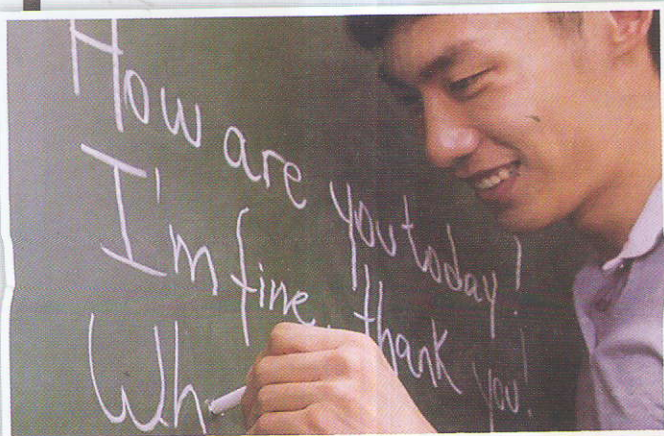 How are you today!
I'm fine, thank you!
Wh